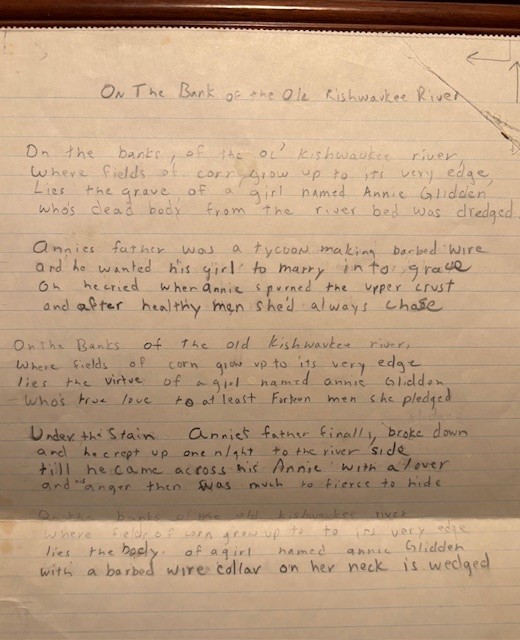 On The Bank of the Old Kishwaukee River
On the banks, of the ol' Kishwaukee river,
Where fields of corn grow up to its very edge,
Lies the grave of a girl named Annie Glidden
Who's dead body from the river bed was dredged.
Annies father was a tycoon making barbed wire
and he wanted his girl to marry into grace
Oh he cried when annie spurned the upper crust
and after healthy men she'd always chase
On the Banks of the old Kishwaukee river,
Where fields of corn grow up to its very edge
lies the virtue of a girl named annie Glidden
Who's true love to at least Forteen men she pledged
Under the Stain Annie's father finally broke down
and he crept up one night to the river side
till he came across his Annie with a lover
and his anger then was much to fierce to hide
On the banks of the old kishwaukee river
Where fields of corn grow up to to its very edge
lies the body of a girl named annie Glidden
with a barbed wire collar on her neck is wedged